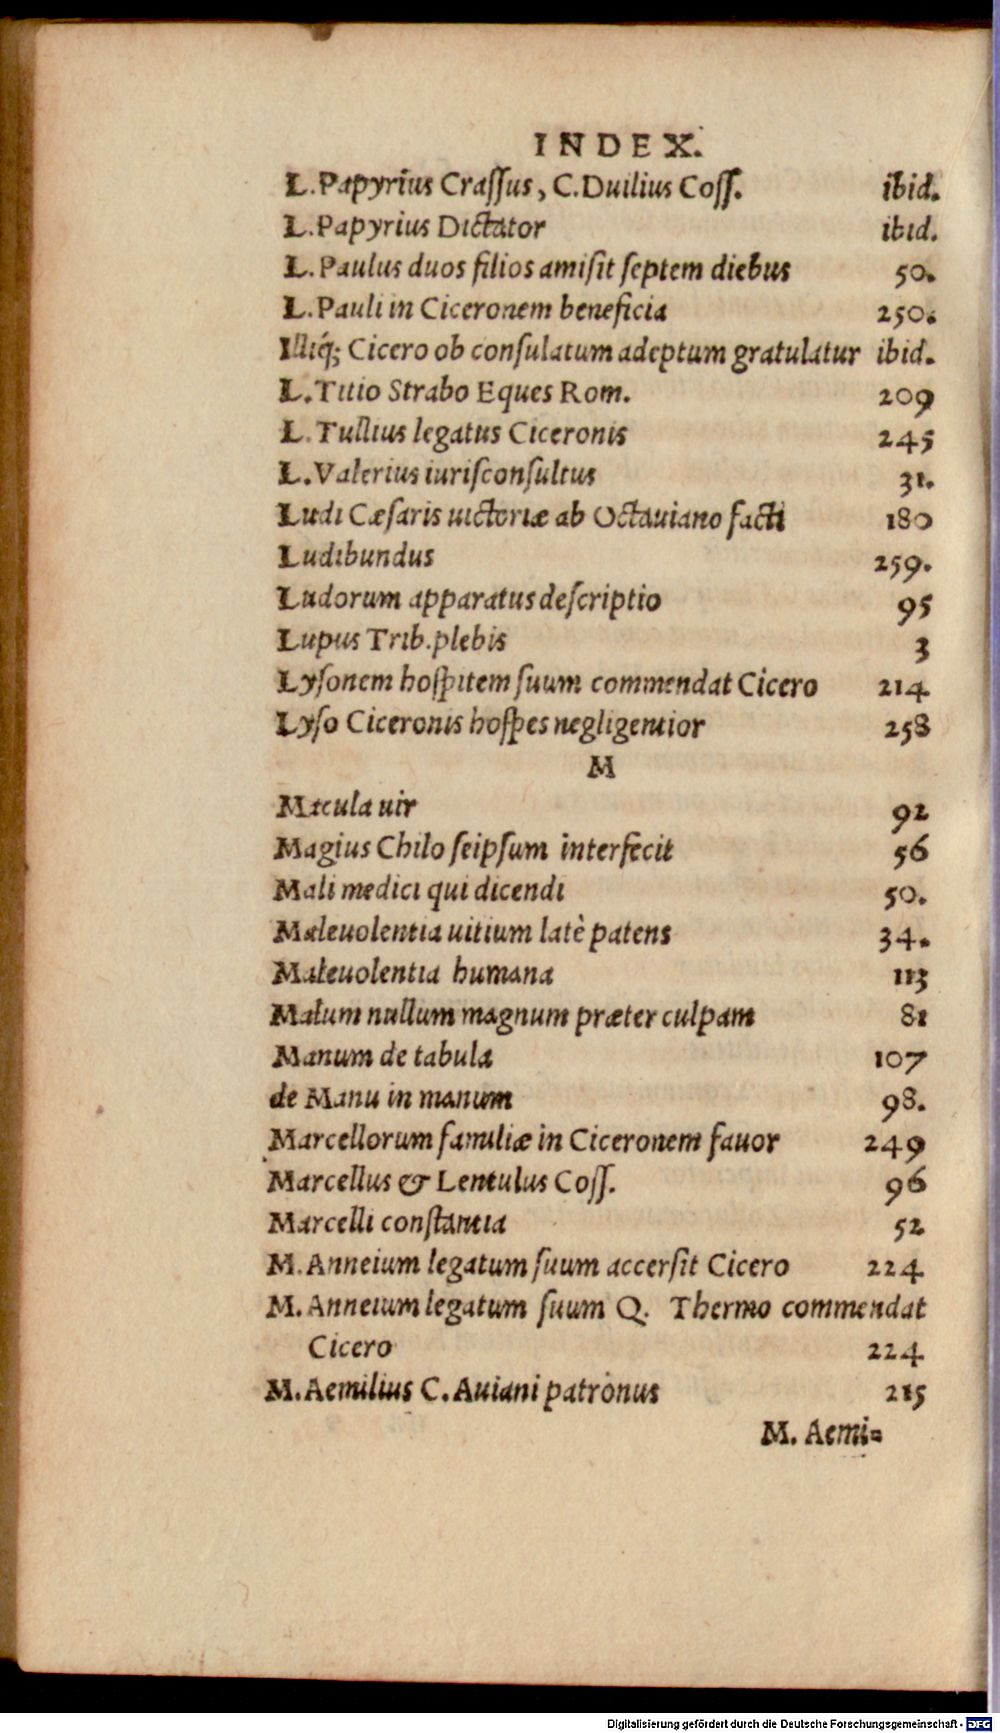 INDEX.
L.Papyrius Craſſus, C.Duilius Coſſ. ibid.
L.Papyrius Dictator ibid.
L.Paulus duos filios amiſit ſeptem diebus 50.
L.Pauli in Ciceronem beneficia 250.
Illiq́; Cicero ob conſulatum adeptum gratulatur ibid.
L.Titio Strabo Eques Rom. 209
L.Tullius legatus Ciceronis 245
L.Valerius iuriſconſultus 31.
Ludi Cæſaris uictoriæ ab Octauiano facti 180
Ludibundus 259.
Ludorum apparatus deſcriptio 95
Lupus Trib.plebis 3
Lyſonem hoſpitem ſuum commendat Cicero 214
Lyſo Ciceronis hoſpes negligentior 258
M
Macula uir 92
Magius Chilo ſeipſum interfecit 56
Mali medici qui dicendi 50.
Maleuolentia uitium latè patens 34.
Maleuolentia humana 113
Malum nullum magnum præter culpam 81
Manum de tabula 107
de Manu in manum 98.
Marcellorum familiæ in Ciceronem fauor 249
Marcellus & Lentulus Coſſ. 96
Marcelli conſtantia 52
M.Anneium legatum ſuum accerſit Cicero 224
M.Anneium legatum ſuum Q. Thermo commendat
Cicero 224
M.Aemilius C.Auiani patronus 215
M. Aemi=
Digitalisierung gefördert durch die Deutsche Forschungsgemeinschaft - DFG